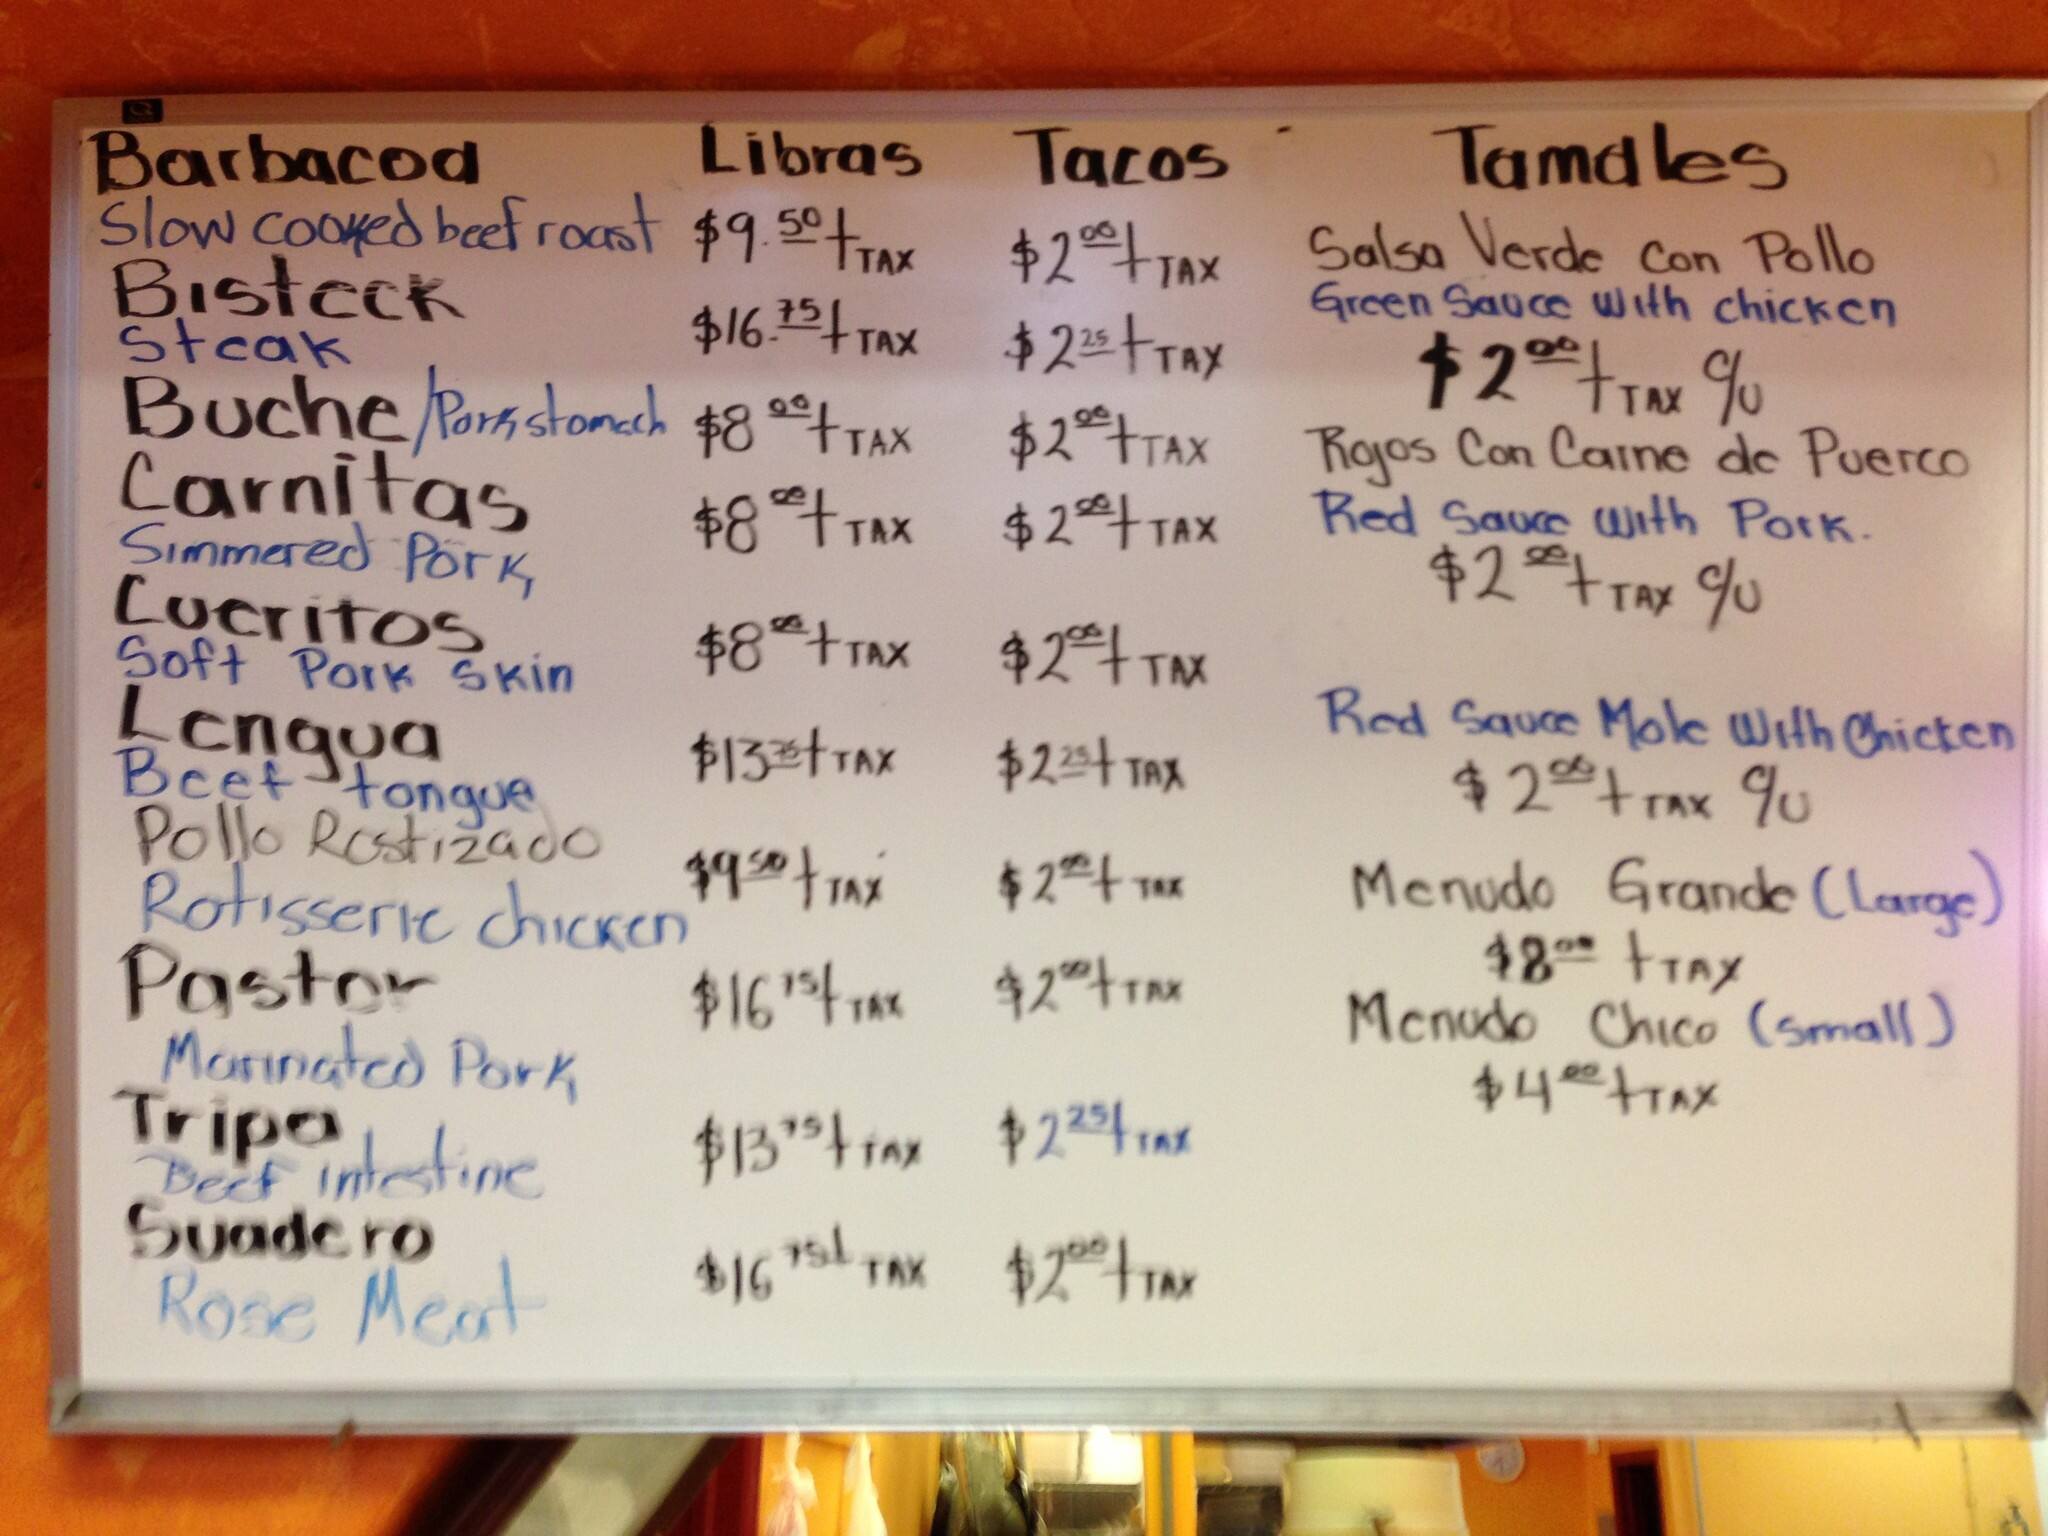 Barbacoa Libras Tacos Tamales
Slow cooked beef roast $9.50+TAX $2.00+TAX Salsa Verde Con Pollo
Bisteck Green Sauce With chicken
Steak $16.75+TAX $2.25+TAX $2.00+TAX c/u
Buche/Pork stomach $8.00+TAX $2.00+TAX Rojos Con Carne de Puerco
Carnitas $8.00+TAX $2.00+TAX Red Sauce With Pork.
Simmered Pork $2.00+TAX c/u
Cueritos $8.00+TAX $2.00+TAX
Soft Pork Skin
Lengua $13.75+TAX $2.25+TAX Red Sauce Mole With Chicken
Beef tongue $2.00+TAX c/u
Pollo Rostizado $9.50+TAX $2.00+TAX Menudo Grande (Large)
Rotisserie chicken $8.00+TAX
Pastor $16.75+TAX $2.00+TAX Menudo Chico (Small)
Marinated Pork $4.00+TAX
Tripa $13.75+TAX $2.25+TAX
Beef intestine
Suadero $16.75+TAX $2.00+TAX
Rose Meat